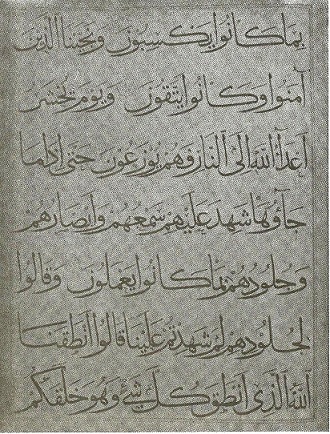 بِمَا كَانُوا يَكْسِبُونَ وَنَجَّيْنَا الَّذِينَ
آمَنُوا وَكَانُوا يَتَّقُونَ وَيَوْمَ يُحْشَرُ
أَعْدَاءُ اللَّهِ إِلَى النَّارِ فَهُمْ يُوزَعُونَ حَتَّى إِذَا مَا
جَاؤُهَا شَهِدَ عَلَيْهِمْ سَمْعُهُمْ وَأَبْصَارُهُمْ
وَجُلُودُهُمْ بِمَا كَانُوا يَعْمَلُونَ وَقَالُوا
لِجُلُودِهِمْ لِمَ شَهِدْتُمْ عَلَيْنَا قَالُوا أَنْطَقَنَا
اللَّهُ الَّذِي أَنْطَقَ كُلَّ شَيْءٍ وَهُوَ خَلَقَكُمْ